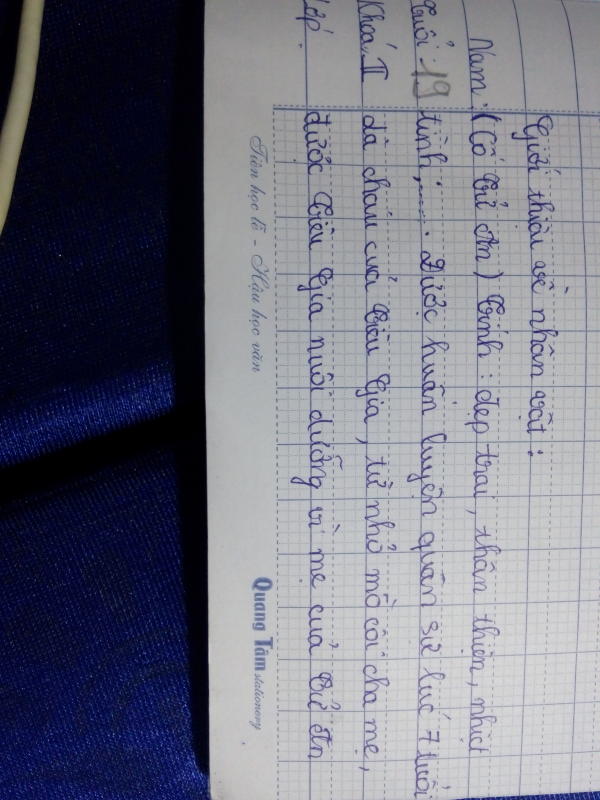 Giới thiệu về nhân vật :
Nam : (Cố Tử Ân) Tính : đẹp trai, thân thiện, nhiệt
Tuổi : 19 tình ;..... Được huấn luyện quân sự lúc 7 tuổi
Khoá II là cháu của Tiêu Gia, từ nhỏ mồ côi cha mẹ,
Lớp được Tiêu Gia nuôi dưỡng vì mẹ của Tử Ân
Tiên học lễ - Hậu học văn
Quang Tâm stationery